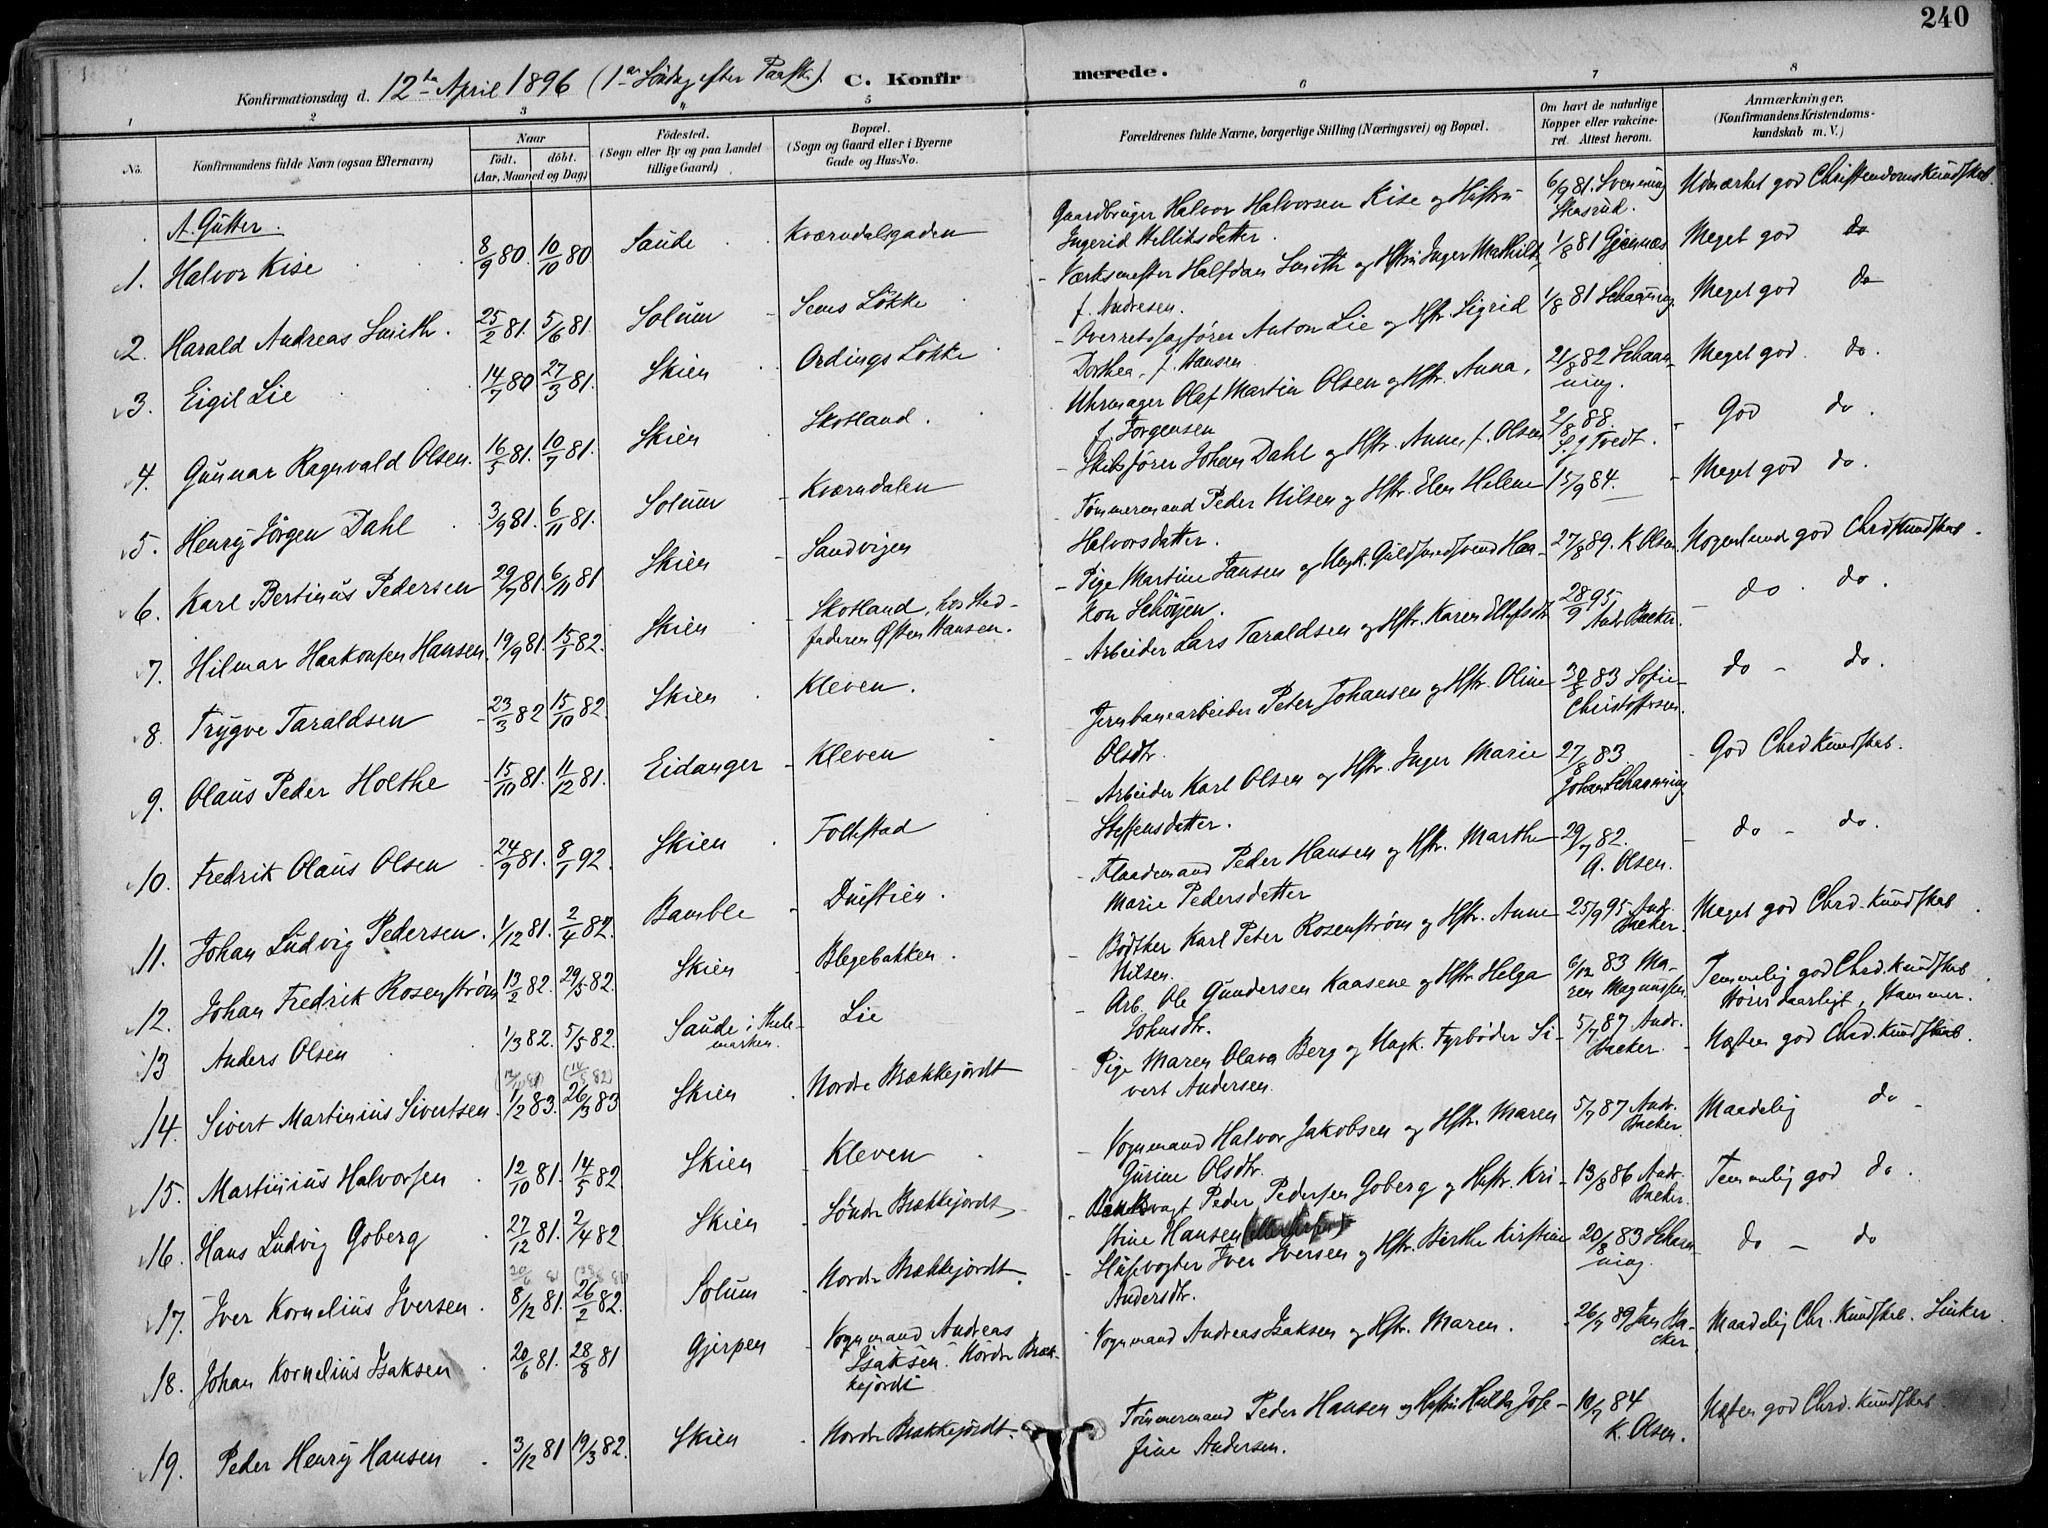 240
Konfirmationsdag d. 12te April 1896 (1ste Söndag efter Paaske). C. Konfirmerede.
1 2 3 4 5 6 7 8
No. Konfirmandens fulde Navn (ogsaa Efternavn) Naar födt. döbt. (Aar, Maaned og Dag) Födested. (Sogn eller By og paa Landet tillige Gaard) Bopæl. (Sogn og Gaard eller i Byerne Gade og Hus-No. Forældrenes fulde Navne, borgerlige Stilling (Næringsvei) og Bopæl. Om havt de naturlige Kopper eller vakcineret. Attest herom. Anmærkninger. (Konfirmandens Kristendomskundskab m. V.)
A. Gutter.
1. Halvor Kise 8/9 80 10/10 80 Saude Kværndalsgaden Gaardbruger Halvor Halvorsen Kise og Hustru 6/9 81. Svenning Udmærket god Christendomskundskab.
Ingerid Kelliksdatter.
2. Harald Andreas Smith. 25/2 81. 5/6 81. Solum Sems Løkke Værksmester Halfdan Smith og Hstru Inger Mathilde 1/8 81 Meget god do
f. Andresen.
3. Eigil Lie 14/7 80 27/3 81. Skien Ordings Løkke Overretssagfører Anton Lie og Hstr. Sigrid 1/8 81 Schaanning Meget god do
Dorthea, f. Hansen
4. Gunnar Ragnvald Olsen. 16/5 81. 10/7 81. Skien Skotland. Uhrmager Olaf Martin Olsen og Hstr. Anna, 21/8 82 Schaanning. Meget god do.
f. Jørgensen
5. Henry Jörgen Dahl 3/9 81. 6/11 81. Solum Kværndalen Skibsfører Johan Dahl og Hstr. Anne f. Olsen 2/8 88. S. J. Tvedt. God do.
6. Karl Bertinus Pedersen 29/7 81. 6/11 81 Skien Sandvigen Tømmermand Peder Nilsen og Hstr. Elen Helene 15/9 84. Meget god do.
Halvorsdatter.
7. Hilmar Haakonsen Hansen. 19/9 81. 15/1 82. Skien Skotland, hos Sted- Pige Martine Jansen og Ungk. Guldsmedsvend Haa- 27/8 89. K Olsen Nogenlunde god Chrdskundskab.
faderen Østen Hansen. kon Schøyen.
8. Trygve Taraldsen 23/3 82 15/10 82. Skien Kleven. Arbeider Lars Taraldsen og Hstr. Karen Ellefsdtr 28/9 95 Andr Backer. do. do.
9. Olaus Peder Holthe 15/10 81. 11/12 81. Eidanger Kleven Jernbanearbeider Peter Johansen og Hstr. Oline 30/8 83 Sofie Christoffersen. do - do.
Olsdtr.
10. Fredrik Olaus Olsen 24/9 81. 8/1 92. Skien Follestad Arbeider Karl Olsen og Hstr. Inger Marie 27/8 83. Johan Schaanning God Chrd Kundskab.
Steffensdatter.
11. Johan Ludvig Pedersen. 1/12 81. 2/4 82. Bamble Duestien. Flaademand Peder Hansen og Hstr. Marthe 29/7 82. A. Olsen. do - do.
Marie Pedersdatter
12. Johan Fredrik Rosenstrøm 13/2 82. 29/5 82. Skien Blegebakken. Bødtker Karl Peter Rosenstrøm og Hstr. Anne 25/9 95 Andr. Backer. Meget god Chrd. Kundskab
Nilsen.
13 Anders Olsen 1/3 82. 5/5 82. Saude i Thelemarken. Lie Arb. Ole Gundersen Kaasene og Hstr Helga 6/12 83 Maren Magnussen. Temmelig god Chrd. Kundskab
Johnsdtr. Hører daarligt, stammer.
14. Sivert Martinius Sivertsen. 1/2 83. 26/3 83 Skien Nordre Brækkejordt Pige Maren Olava Berg og Ungk. Fyrbøder Si- 5/7 87 Andr. Backer. Næsten god Chrd. Kundskab.
vert Andersen.
15. Martinius Halvorsen 12/10 81. 14/5 82 Skien Kleven Vognmand Halvor Jakobsen og Hstr. Maren 5/7 87 Andr. Backer Maadelig do
Gurine Olsdtr.
16. Hans Ludvig Goberg 27/12 81. 2/4 82. Skien Söndre Brækkejordt Bankvagt Peder Pedersen Goberg og Hustr. Kri- 13/8 86 Andr Backer. Temmelig god do.
stine Hansen
17. Iver Kornelius Iversen. 8/12 81. 26/2 82. Solum Nordre Brækkejordt. Slusevogter Iver Iversen og Hstr. Birthe Kirstine 20/8 83 Schaanning. do - do
Andersdtr.
18. Johan Kornelius Isaksen 20/6 81. 28/8 81 Gjerpen Vognmand Andreas Vognmand Andreas Isaksen og Hstr. Maren. 26/7 89 Jan Backer. Maadelig Chr. Kundskab. Sinker.
Isaksen. Nordre Bræk-
kejordt
19. Peder Henry Hansen 3/12 81 19/3 82. Skien Nordre Brækkejordt. Tømmermand Peder Hansen og Hustru Hulda Jose- 10/7 84 K. Olsen. Næsten god Chrd. Kundskab
fine Andersen.